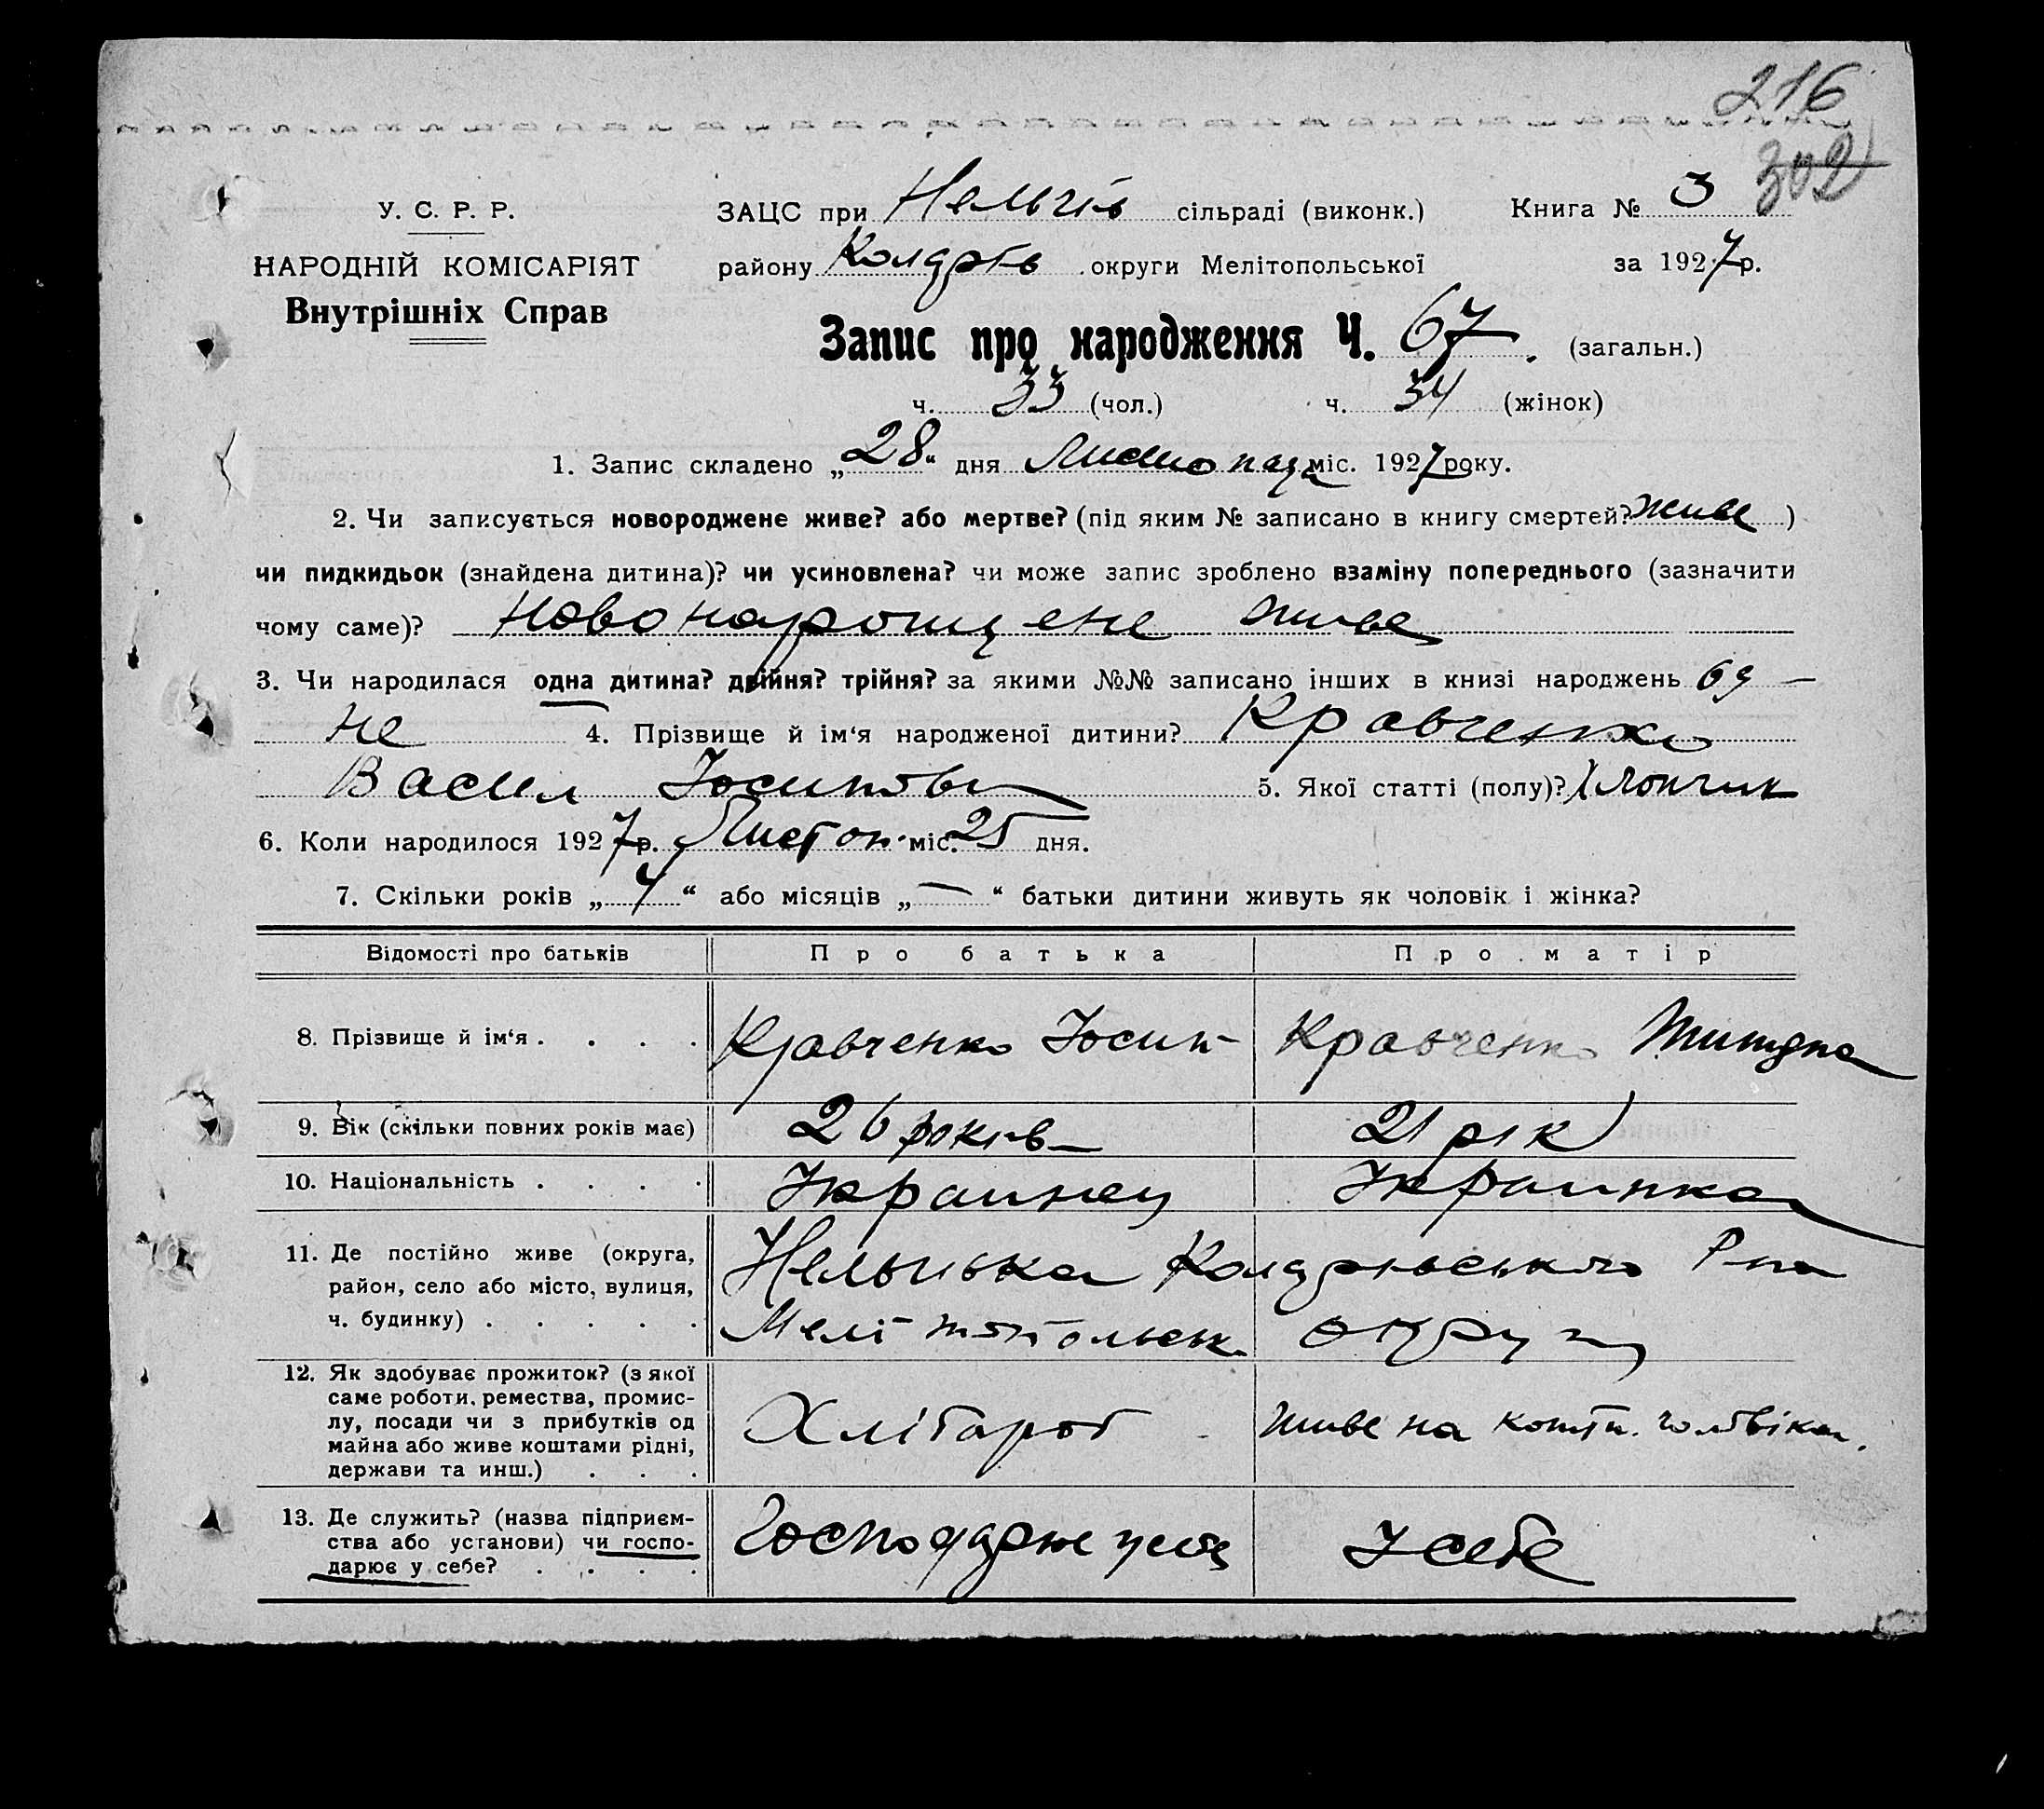 216
302
У. С. Р. Р.
НАРОДНІЙ КОМІСАРІЯТ
Внутрішніх Справ
ЗАЦС при сільраді (виконк.)
Книга № 3
району округи Мелітопольської
за 1927р.
Запис про народження Ч. 67. (загальн.)
ч. 33 (чол.) ч. 34 (жінок)
1. Запис складено „28“ дня Листопада міс. 1927 року.
2. Чи записується новороджене живе? або мертве? (під яким № записано в книгу смертей? живе)
чи пидкидьок (знайдена дитина)? чи усиновлена? чи може запис зроблено взаміну попереднього (зазначити
чому саме)? живе
3. Чи народилася одна дитина? двійня? трійня? за якими №№ записано інших в книзі народжень
не 4. Прізвище й ім‘я народженої дитини? Кравченко
Васил 5. Якої статті (полу)? Хлопчик
6. Коли народилося 1927р. Листоп. міс. 25 дня.
7. Скільки років „4“ або місяців „—“ батьки дитини живуть як чоловік і жінка?
Відомості про батьків Про батька Про матір
8. Прізвище й ім‘я . . . . Кравченко Йосип Кравченко
9. Вік (скільки повних років має) 26 років 21 рік
10. Національність . . . . Украинец Украинка
11. Де постійно живе (округа,
район, село або місто, вулиця,
ч. будинку) . . . . . Мелітопольськ. округи
12. Як здобуває прожиток? (з якої
саме роботи, ремества, промис-
лу, посади чи з прибутків од
майна або живе коштами рідні,
держави та инш.) . . . Хліборob живе на кошти. чоловіка.
13. Де служить? (назва підприєм-
ства або установи) чи госпо-
дарює у себе? . . . . Господарює у себе У себе